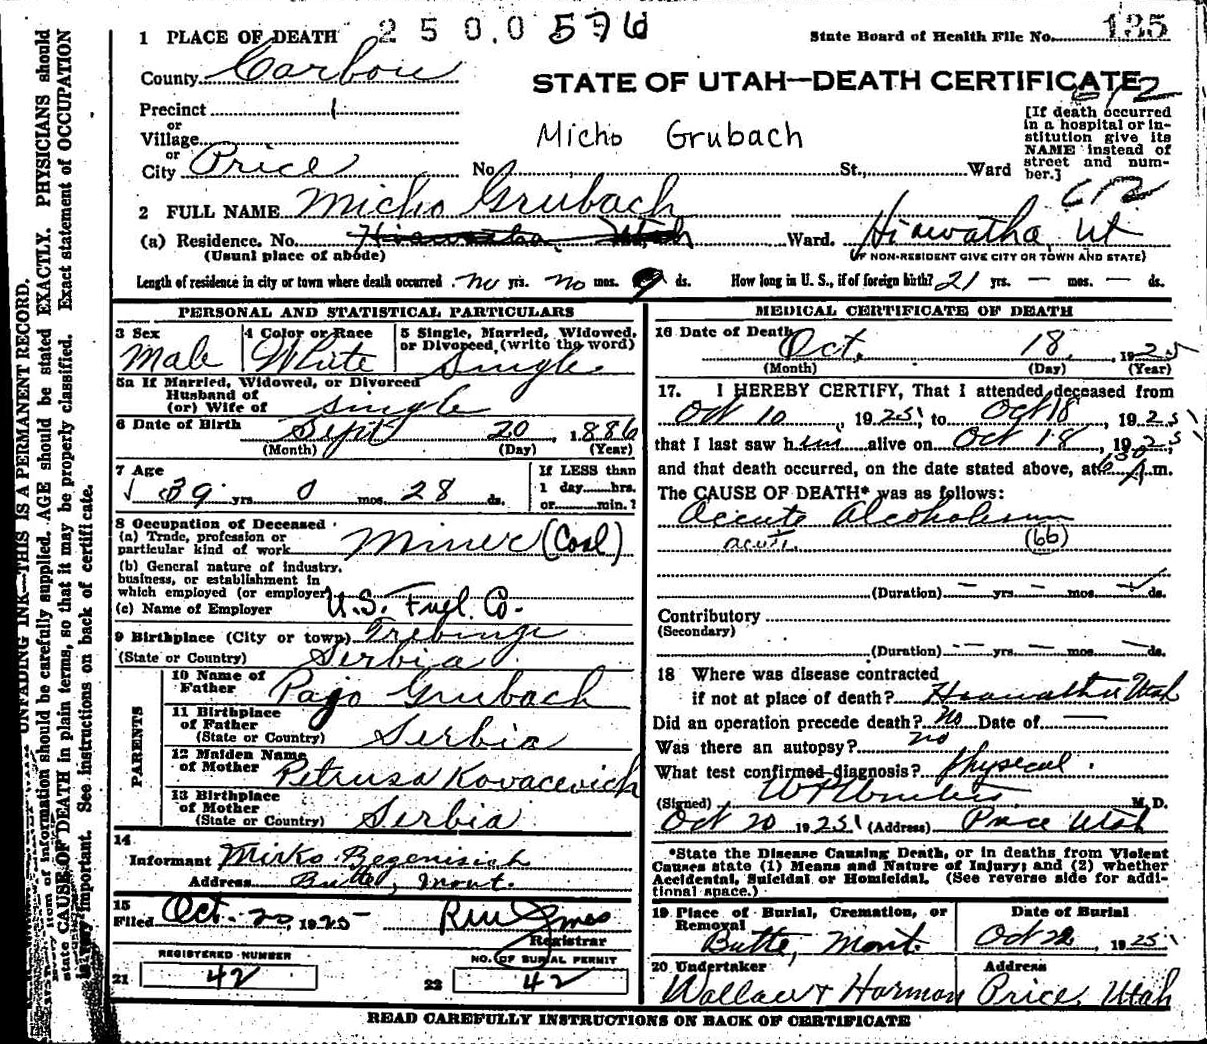 2 5 0 0 576
State Board of Health File No. 135
1 PLACE OF DEATH
County Carbon
STATE OF UTAH—DEATH CERTIFICATE
Precinct 1
or
Village
or
City Price
Micho Grubach
[If death occurred
in a hospital or in-
stitution give its
NAME instead of
street and num-
ber.]
No. St., Ward
2 FULL NAME Micho Grubach
(a) Residence. No. Hiawatha Utah Ward. Hiawatha, Ut
(Usual place of abode) (IF NON-RESIDENT GIVE CITY OR TOWN AND STATE)
Length of residence in city or town where death occurred no yrs. no mos. 9 ds. How long in U. S., if of foreign birth? 21 yrs. — mos. — ds.
PERSONAL AND STATISTICAL PARTICULARS
3 Sex 4 Color or Race 5 Single, Married, Widowed,
or Divorced, (write the word)
Male White Single
5a If Married, Widowed, or Divorced
Husband of
(or) Wife of single
6 Date of Birth Sept 20, 1886
(Month) (Day) (Year)
7 Age If LESS than
1 day hrs.
or min.?
39 yrs 0 mos 28 ds.
8 Occupation of Deceased
(a) Trade, profession or
particular kind of work Miner (Coal)
(b) General nature of industry,
business, or establishment in
which employed (or employer)
(c) Name of Employer U.S. Fuel Co.
9 Birthplace (City or town) Trebinje
(State or Country) Serbia
PARENTS
10 Name of
Father Pajo Grubach
11 Birthplace
of Father
(State or Country) Serbia
12 Maiden Name
of Mother Petrusa Kovacevich
13 Birthplace
of Mother
(State or Country) Serbia
14
Informant Mirko Begenisich
Address Butte, Mont.
15
Filed Oct. 20, 1925
Registrar
REGISTERED NUMBER NO. OF BURIAL PERMIT
21 42 22 42
MEDICAL CERTIFICATE OF DEATH
16 Date of Death Oct. 18, 1925
(Month) (Day) (Year)
17. I HEREBY CERTIFY, That I attended deceased from
Oct 10, 1925, to Oct 18, 1925,
that I last saw him alive on Oct 18, 1925,
and that death occurred, on the date stated above, at A.m.
The CAUSE OF DEATH* was as follows:
Accute Alcoholism
acute (66)
(Duration) — yrs — mos ds.
Contributory
(Secondary)
(Duration) — yrs — mos — ds.
18 Where was disease contracted
if not at place of death? Hiawatha Utah
Did an operation precede death? no Date of —
Was there an autopsy? no
What test confirmed diagnosis? Physical.
(Signed) M. D.
Oct 20 1925 (Address) Price Utah
*State the Disease Causing Death, or in deaths from Violent
Causes state (1) Means and Nature of Injury; and (2) whether
Accidental, Suicidal or Homicidal. (See reverse side for addi-
tional space.)
19 Place of Burial, Cremation, or
Removal Date of Burial
Butte, Mont. Oct 22, 1925
20 Undertaker Address
Wallace & Harmon Price, Utah
READ CAREFULLY INSTRUCTIONS ON BACK OF CERTIFICATE
UNFADING INK—THIS IS A PERMANENT RECORD.
item of information should be carefully supplied. AGE should be stated EXACTLY. PHYSICIANS should
state CAUSE OF DEATH in plain terms, so that it may be properly classified. Exact statement of OCCUPATION
is very important. See instructions on back of certificate.